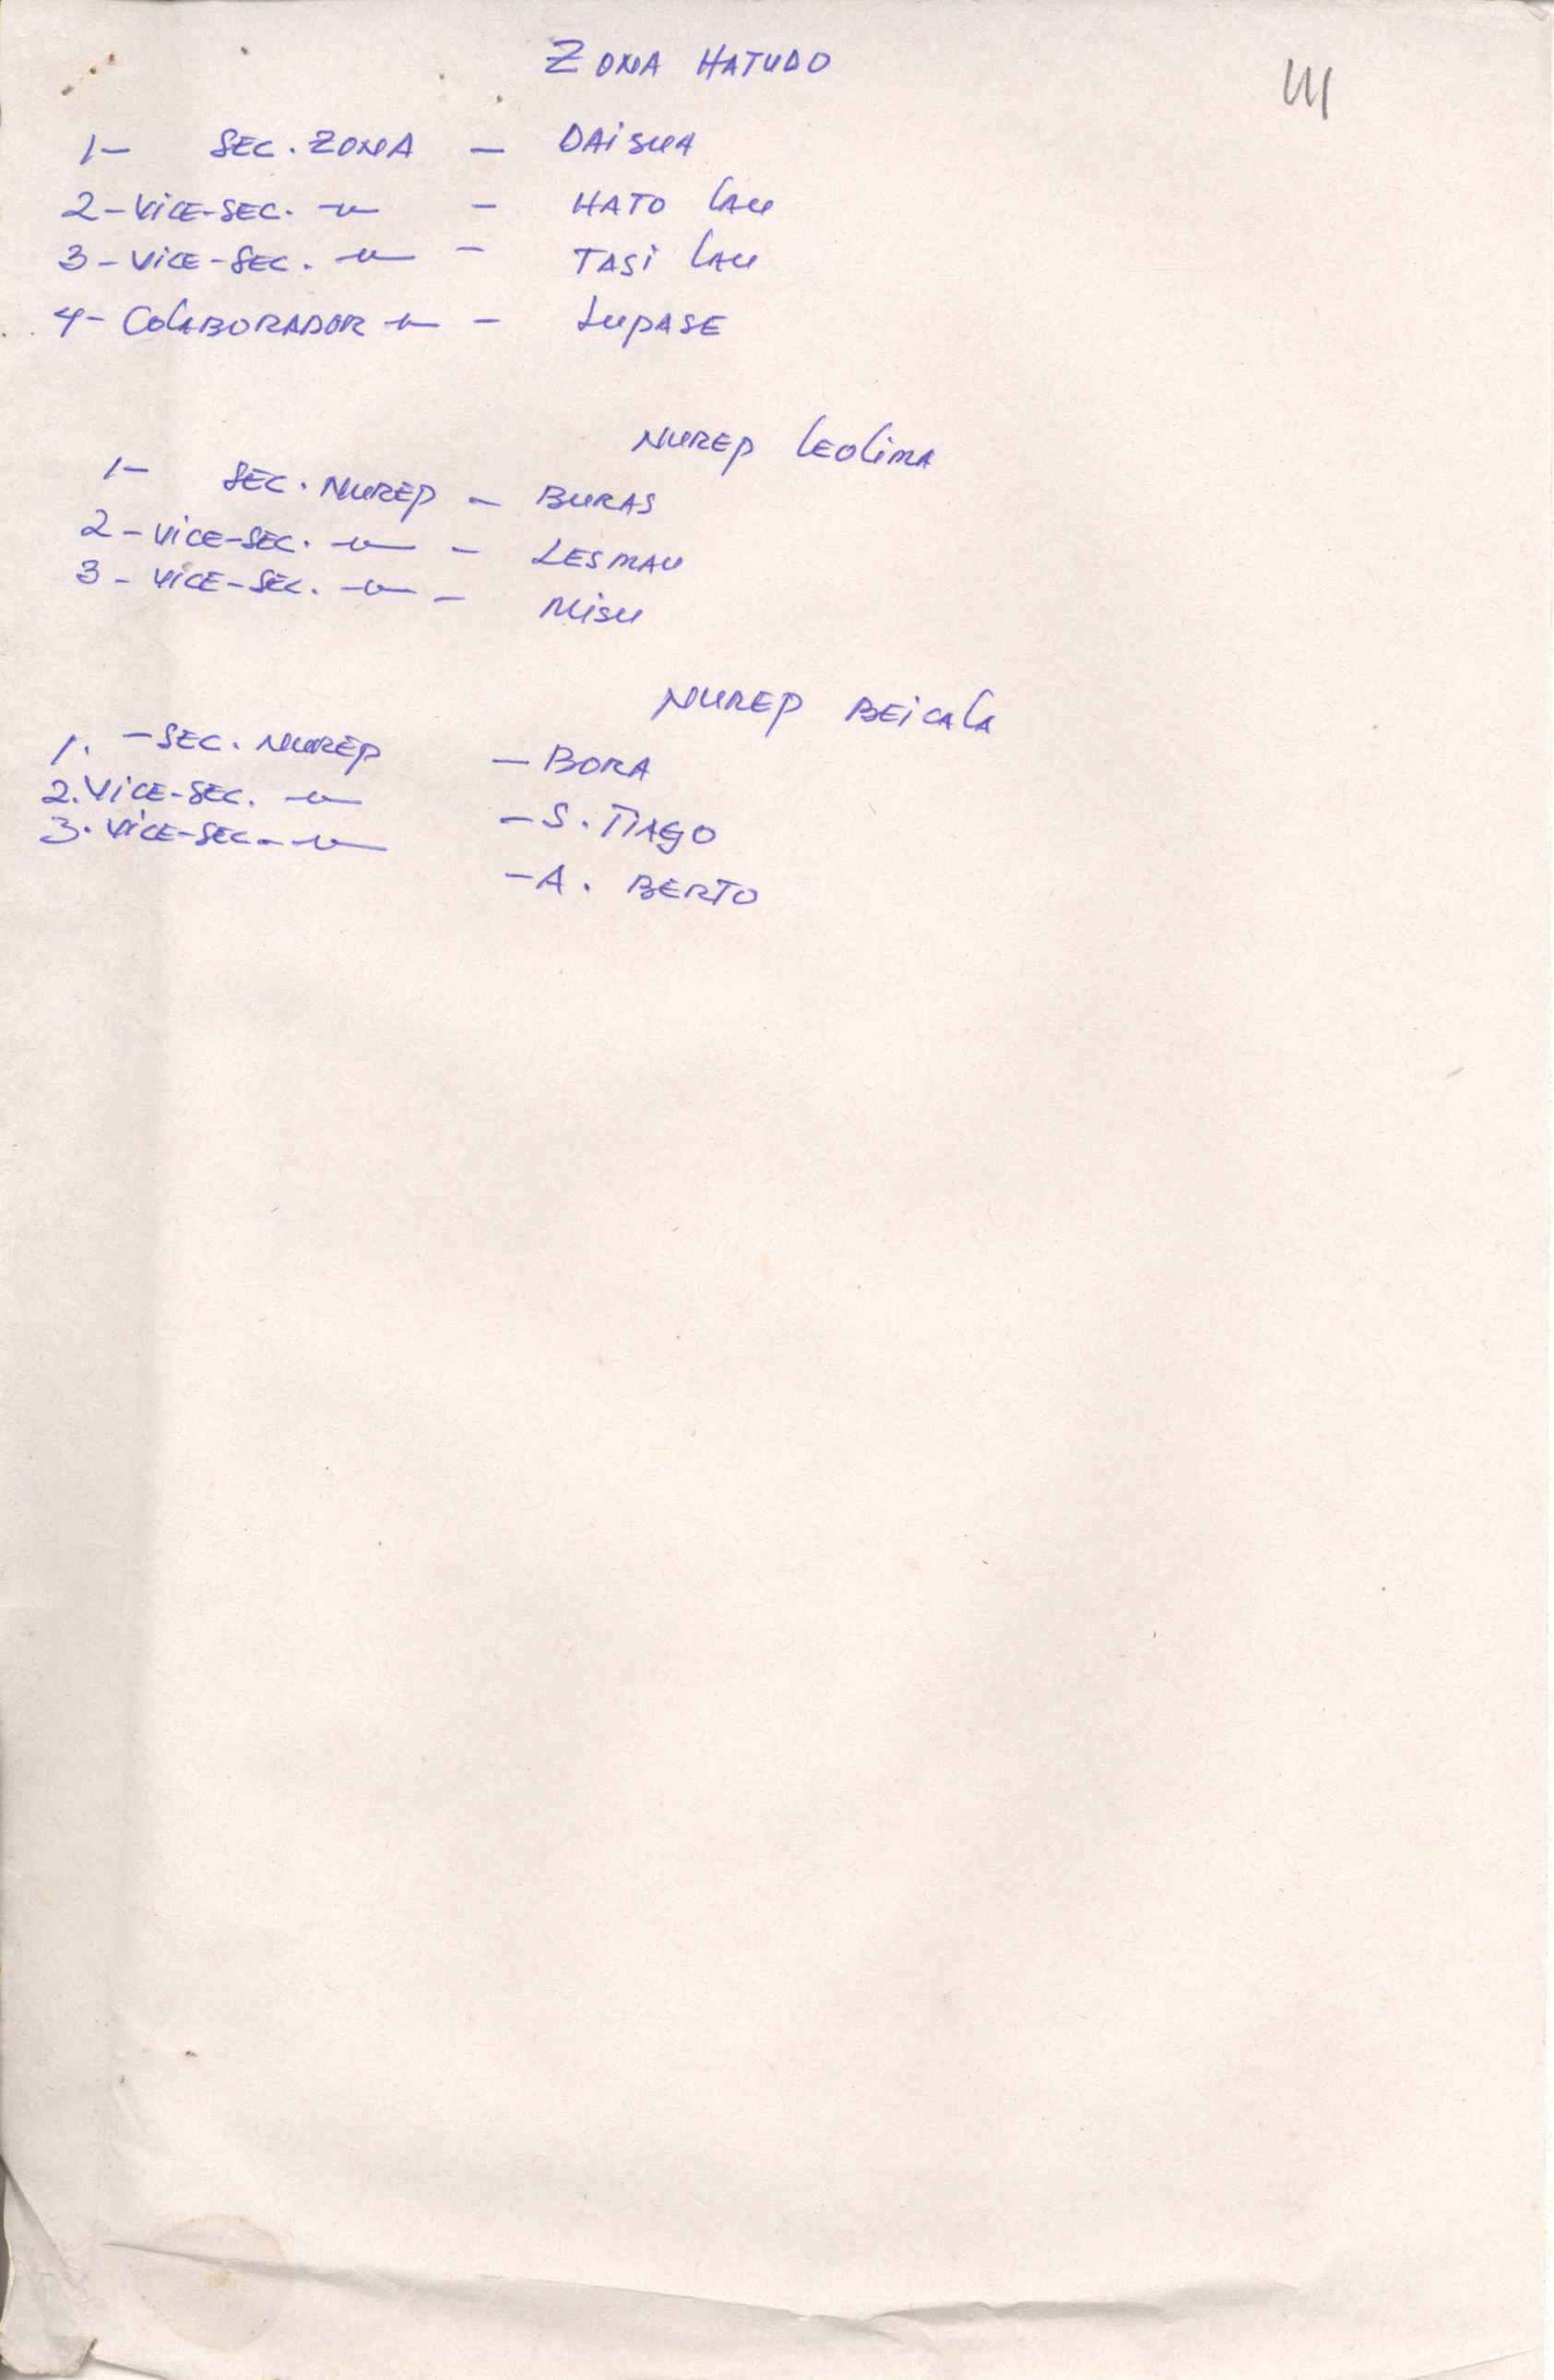 ZONA HATUDO
III
1- SEC. ZONA - DAISUA
2-VICE-SEC. -"- - HATO LAU
3-VICE-SEC. -"- - TASI LAU
4-COLABORADOR -"- - LUPASE
NUREP LEOLIMA
1- SEC. NUREP - BURAS
2-VICE-SEC. -"- - LESMAU
3-VICE-SEC. -"- - MISU
NUREP BEICALA
1. -SEC. NUREP - BORA
2. VICE-SEC. -"- - S. TIAGO
3. VICE-SEC. -"- - A. BERTO